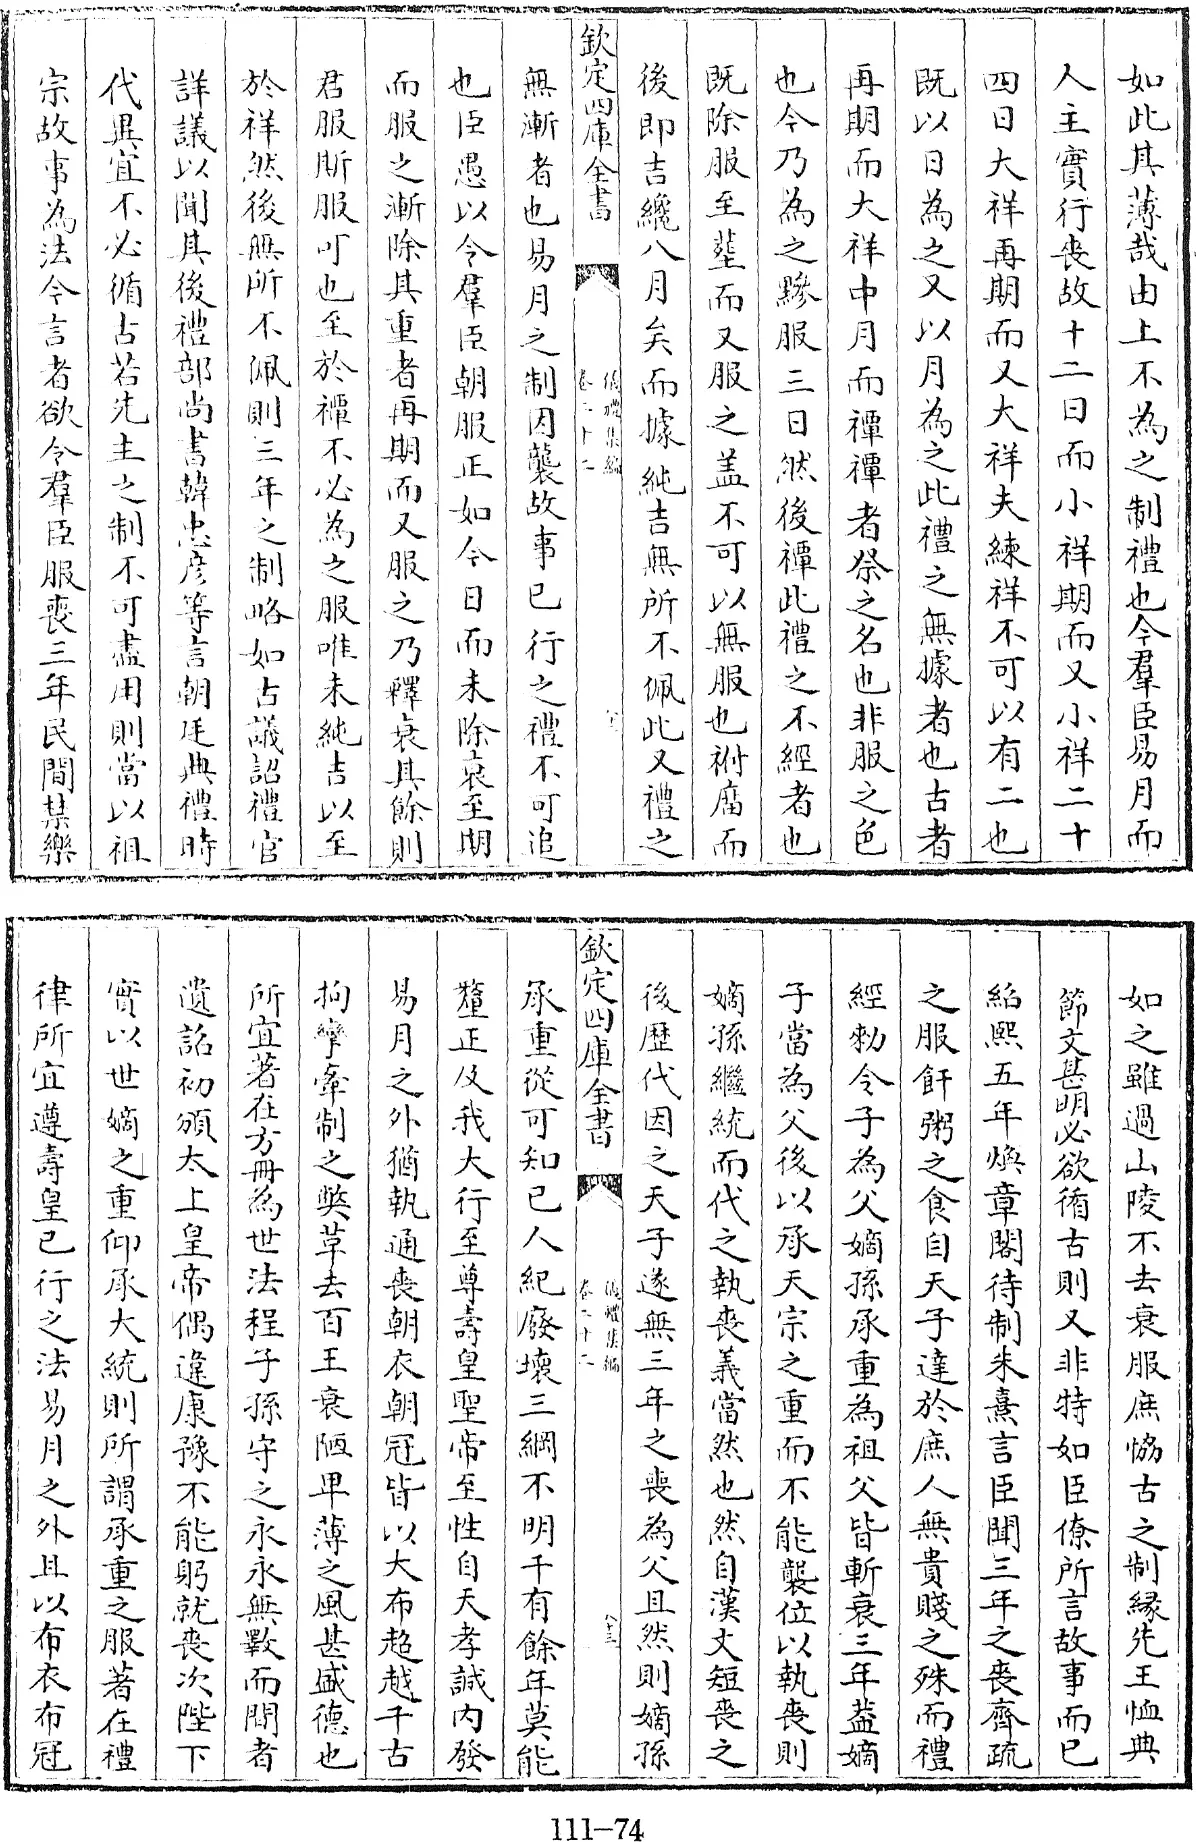 如此其薄哉由上不為之制禮也今羣臣易月而
人主實行喪故十二日而小祥期而又小祥二十
四日大祥再期而又大祥夫練祥不可以有二也
既以日為之又以月為之此禮之無據者也古者
再期而大祥中月而禫禫者祭之名也非服之色
也今乃為之黲服三日然後禫此禮之不經者也
既除服至塟而又服之盖不可以無服也祔廟而
後即吉纔八月矣而據純吉無所不佩此又禮之
欽定四庫全書
儀禮集編
卷二十二
無漸者也易月之制因襲故事已行之禮不可追
也臣愚以令羣臣朝服正如今日而未除衰至期
而服之漸除其重者再期而又服之乃釋衰其餘則
君服斯服可也至於禫不必為之服唯未純吉以至
於祥然後無所不佩則三年之制略如古議詔禮官
詳議以聞其後禮部尚書韓忠彦等言朝廷典禮時
代異宜不必循古若先王之制不可盡用則當以祖
宗故事為法今言者欲令羣臣服喪三年民間禁樂
如之雖過山陵不去衰服庶恊古之制緣先王恤典
節文甚明必欲循古則又非特如臣僚所言故事而已
紹熙五年煥章閣待制朱熹言臣聞三年之喪齊疏
之服飦粥之食自天子達於庶人無貴賤之殊而禮
經勅令子為父嫡孫承重為祖父皆斬衰三年葢嫡
子當為父後以承天宗之重而不能襲位以執喪則
嫡孫繼統而代之執喪義當然也然自漢文短喪之
後歷代因之天子遂無三年之喪為父且然則嫡孫
欽定四庫全書
儀禮集編
卷二十二
承重從可知已人紀廢壞三綱不明千有餘年莫能
釐正及我大行至尊壽皇聖帝至性自天孝誠内發
易月之外猶執通喪朝衣朝冠皆以大布超越千古
拘攣牽制之獘革去百王衰陋卑薄之風甚盛德也
所宜著在方冊為世法程子孫守之永永無斁而間者
遺詔初頒太上皇帝偶違康豫不能躬就喪次陛下
實以世嫡之重仰承大統則所謂承重之服著在禮
律所宜遵壽皇已行之法易月之外且以布衣布冠
111-74